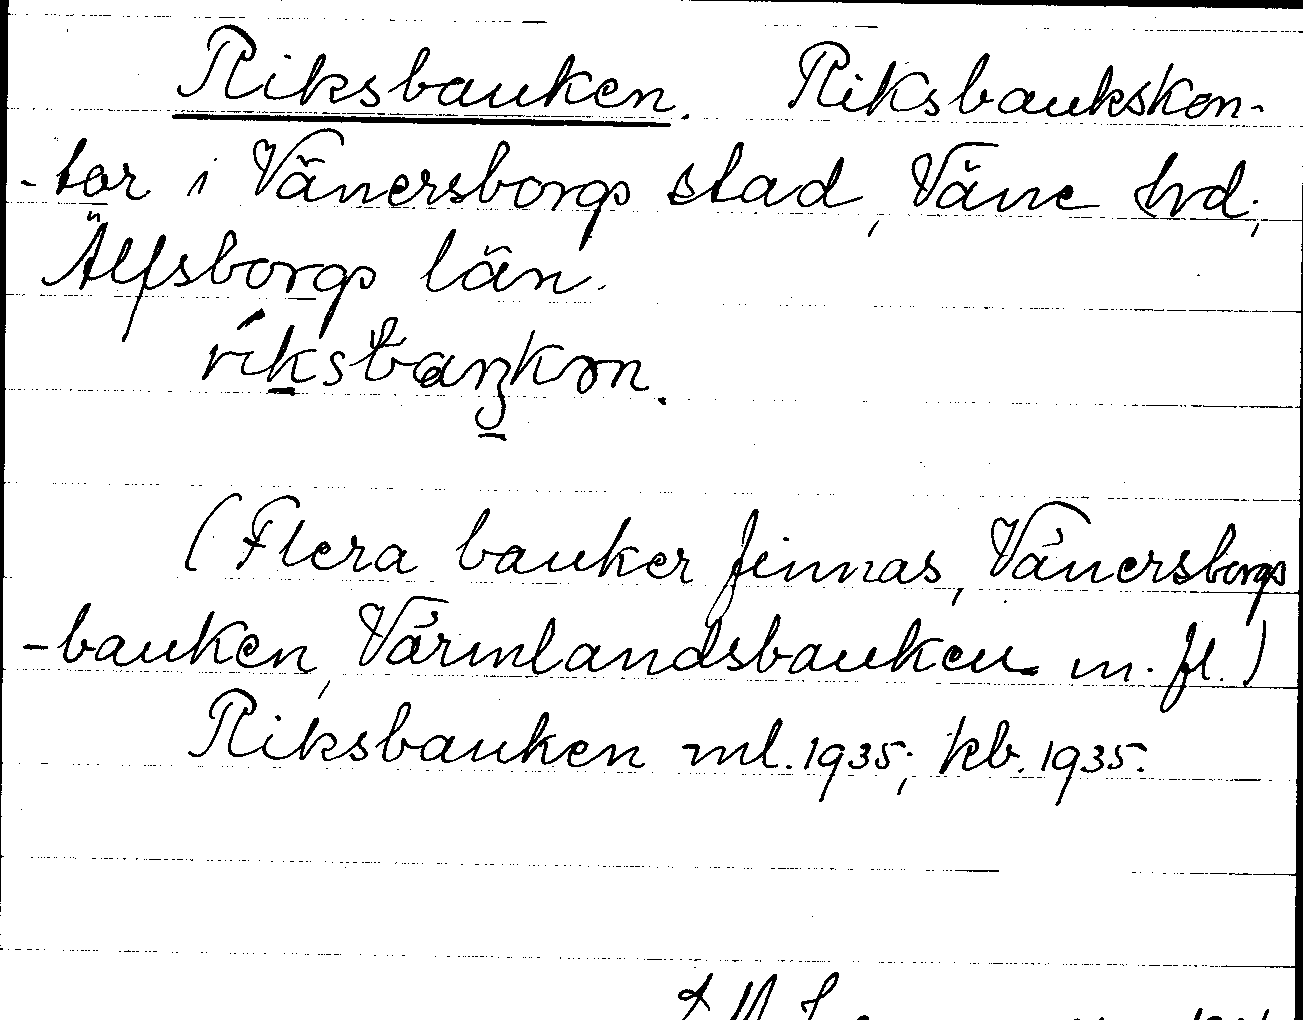 Riksbanken. Riksbankskon-
-tor i Vänersborgs stad, Väne hd;
Älfsborgs län.
(Flera banker finnas, Vänersborgs
-banken, Värmlandsbanken m. fl.)
Riksbanken ml. 1935; kb. 1935.